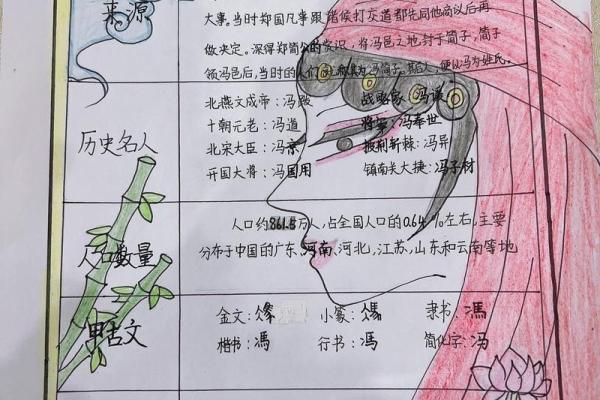 来源
大事。当时郑国凡事跟诸侯打交道都先同他商议后再
做决定。深得郑简公的赏识，将冯邑之地封于简子，简子
领冯邑后，当时的人们 冯简子。其后人，便以冯为姓氏。
历史名人
北燕文成帝：冯跋 战略家：冯谖
十朝元老：冯道 将军：冯奉世
北宋大臣：冯京 披荆斩棘：冯异
开国大将：冯国用 镇南关大捷：冯子材
人口数量
人口约861.8万人，占全国人口的0.64%左右，主要
分布于中国的广东、河南、河北、江苏、山东和云南等地
甲古文
金文： 小篆： 隶书：馮
楷书：馮 行书：馮 简化字：冯